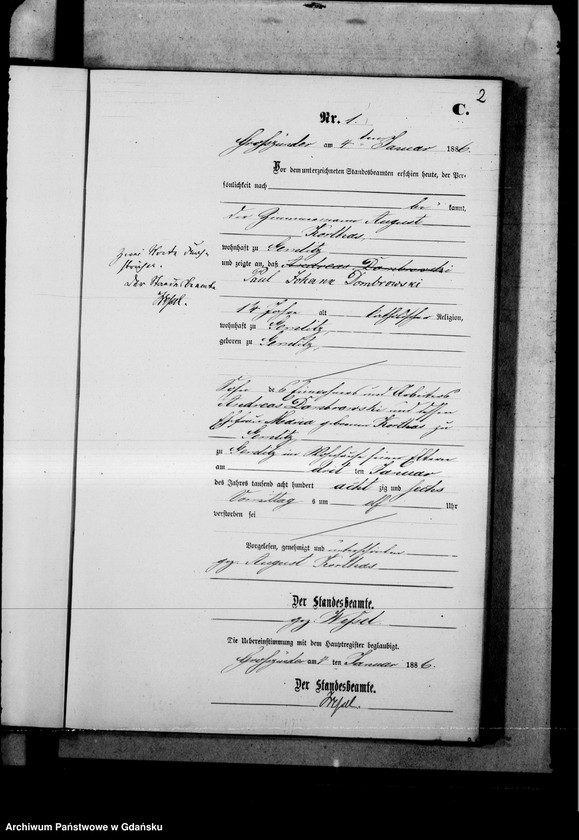 2
C.
Nr. 1.
Großzünder am 4ten Januar 1886.
Vor dem unterzeichneten Standesbeamten erschien heute, der Per-
sönlichkeit nach
be kannt,
der Zimmermann August
Korthas,
wohnhaft zu Gemlitz
und zeigte an, daß Andreas Dombrowski
Paul Johann Dombrowski
Zwei Worte durch-
strichen.
Der Standesbeamte
Wessel.
alt katholischer Religion,
wohnhaft zu Gemlitz,
geboren zu Gemlitz,
Sohn des Eigenthümers und Arbeiters
Andreas Dombrowski und dessen
Ehefrau Maria geborenen Korthas zu
Gemlitz
zu Gemlitz im Wohnhause seiner Eltern
am drei ten Januar
des Jahres tausend acht hundert acht zig und sechs
Vormittags um elf Uhr
verstorben sei
Vorgelesen, genehmigt und unterschrieben
gez. August Korthas
Der Standesbeamte.
gez. Wessel.
Die Uebereinstimmung mit dem Hauptregister beglaubigt.
Großzünder am 4 ten Januar 1886.
Der Standesbeamte.
Wessel.
Archiwum Państwowe w Gdańsku